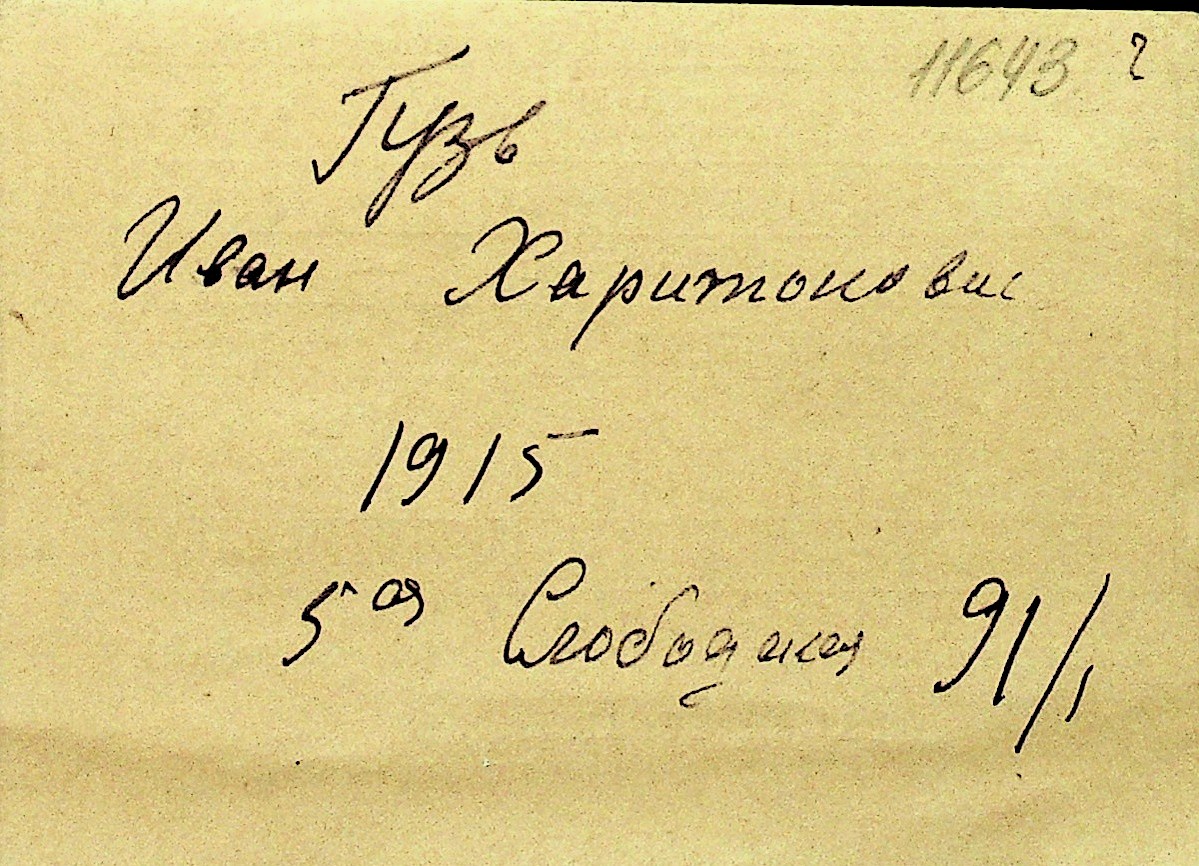 11643 ?
Гузь
Иван Харитонович
1915
5ая Слободская 91/1